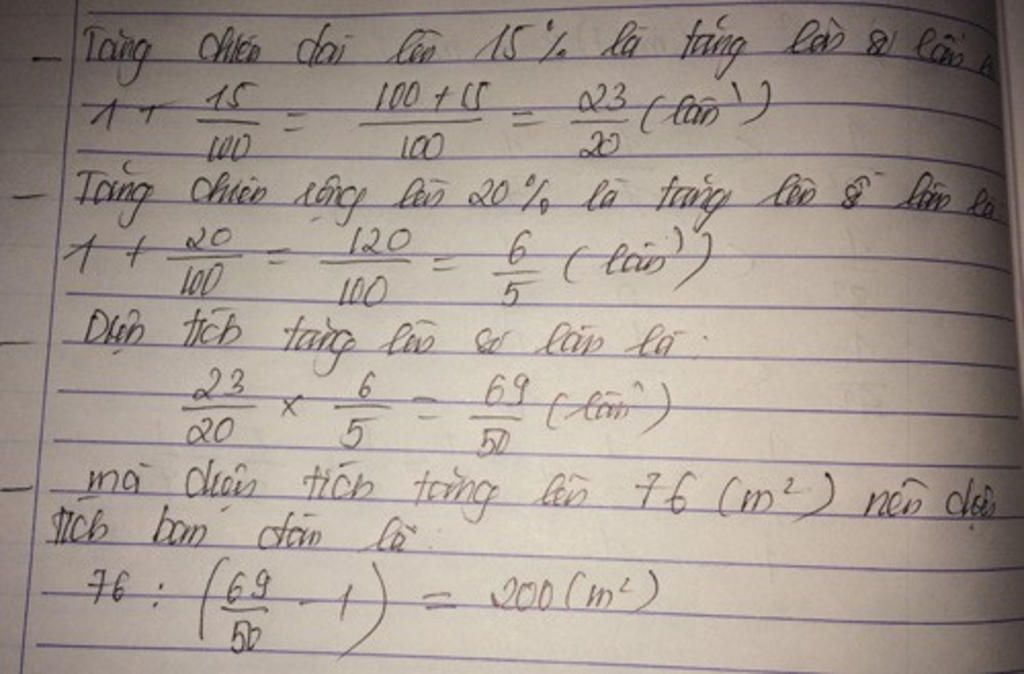 - Tăng chiều dài lên 15% là tăng lên số lần
1 + 15/100 = 100 + 15/100 = 23/20 (lần)
- Tăng chiều rộng lên 20% là tăng lên số lần là
1 + 20/100 = 120/100 = 6/5 (lần)
- Diện tích tăng lên số lần là:
23/20 × 6/5 = 69/50 (lần)
- mà diện tích tăng lên 76 (m²) nên diện
tích ban đầu là:
76 : (69/50 - 1) = 200 (m²)